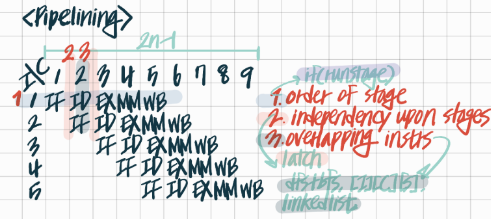 <Pipelining>
2n-1
2 3
I\C 1 2 3 4 5 6 7 8 9
1 1 IF ID EX MM WB
2 IF ID EX MM WB
3 IF ID EX MM WB
4 IF ID EX MM WB
5 IF ID EX MM WB
if(runstage)
1. order of stage
2. independency upon stages
3. overlapping insts
latch
linkedlist.